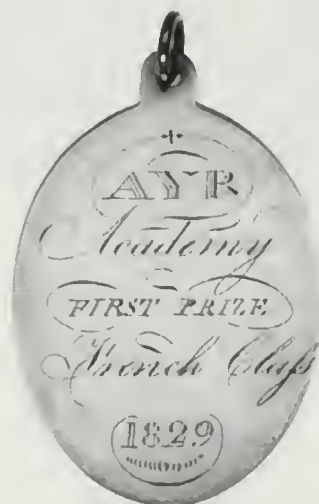 AYR
Academy
FIRST PRIZE
French Claſs
1829